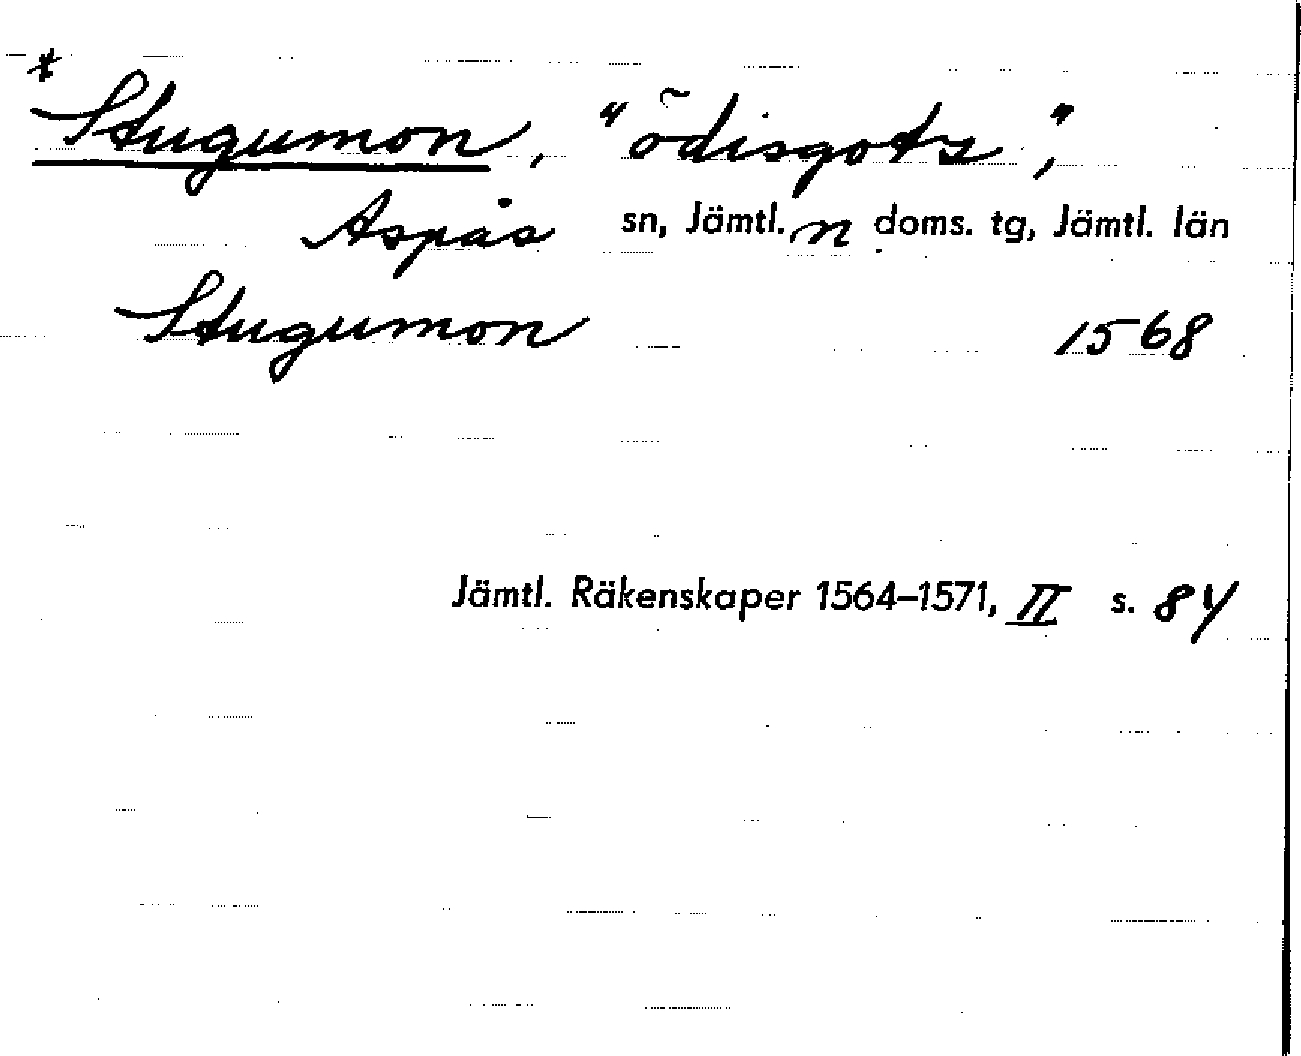 * Stugumon, "ödisgotz",
Aspås sn, Jämtl. n doms. tg, Jämtl. län
Stugumon 1568
Jämtl. Räkenskaper 1564–1571, II s. 84